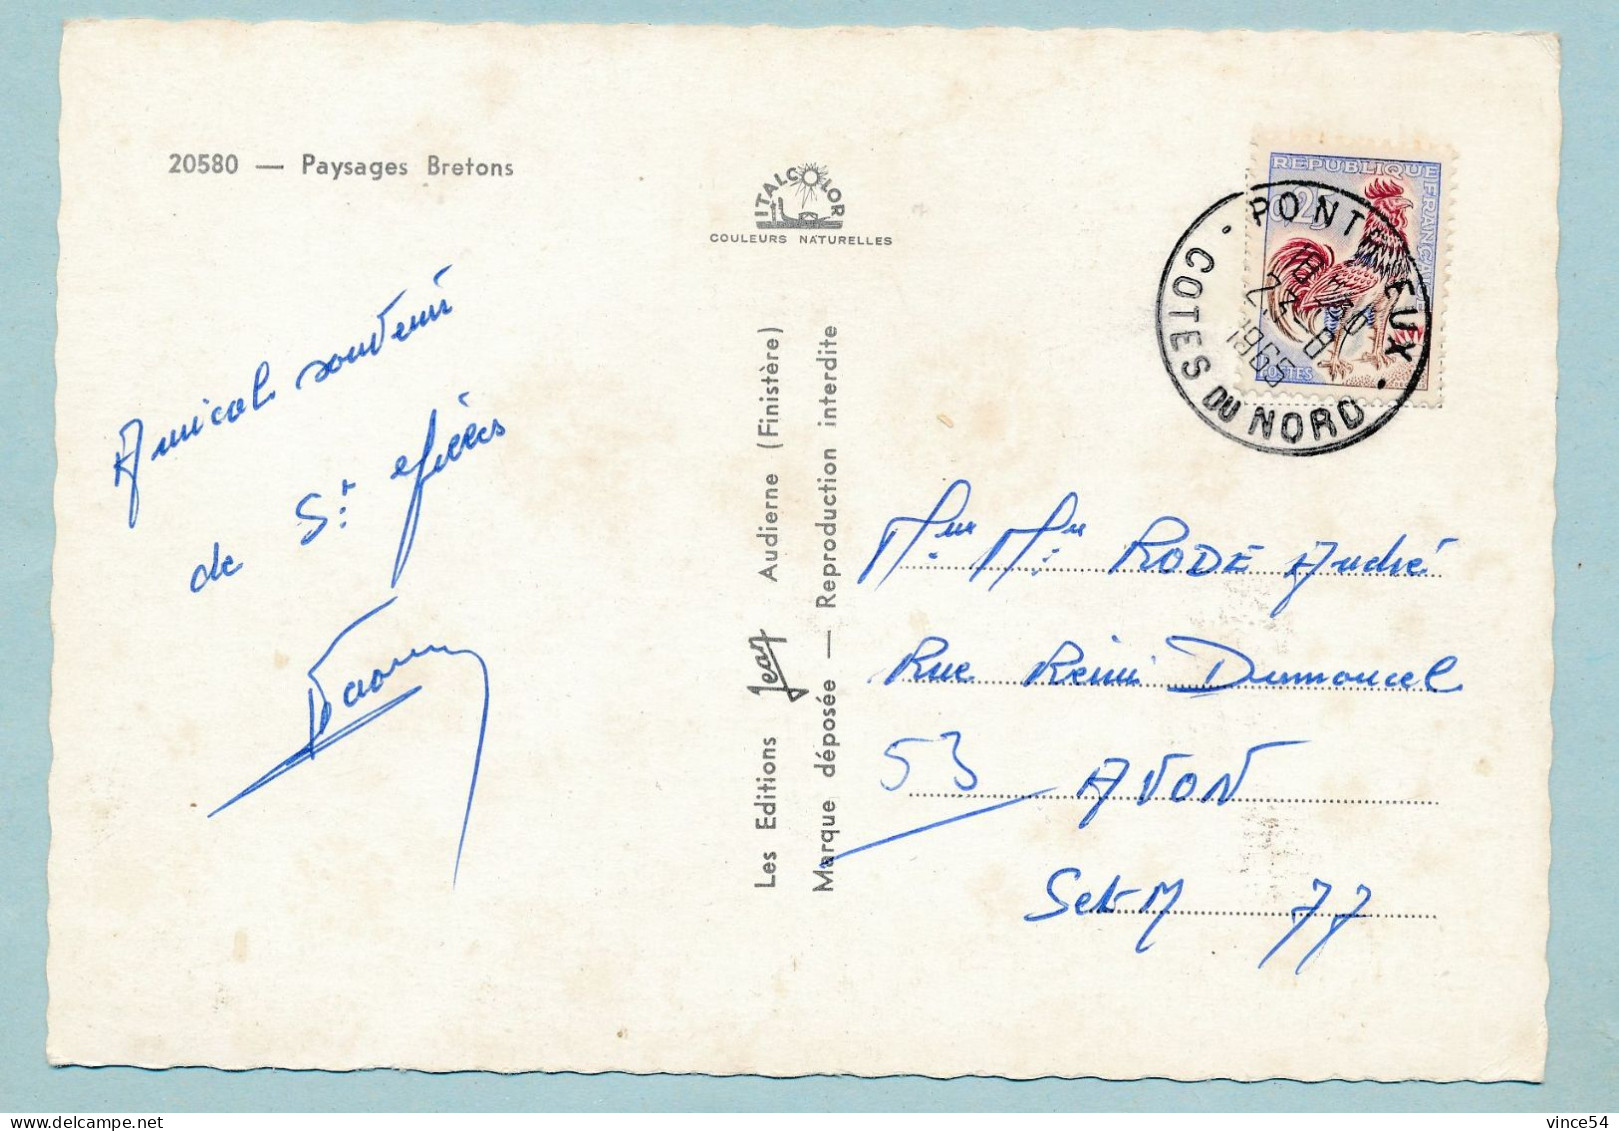 20580 — Paysages Bretons
ITALCOLOR
COULEURS NATURELLES
REPUBLIQUE FRANÇAISE
0,25
POSTES
PONTRIEUX
COTES DU NORD
23-8
1965
Amical souvenir
de St
Les Editions Jean Audierne (Finistère)
Marque déposée — Reproduction interdite
Mr Mme RODE André
Rue Rémi Dumoncel
53 AVON
S et M 77
vince54